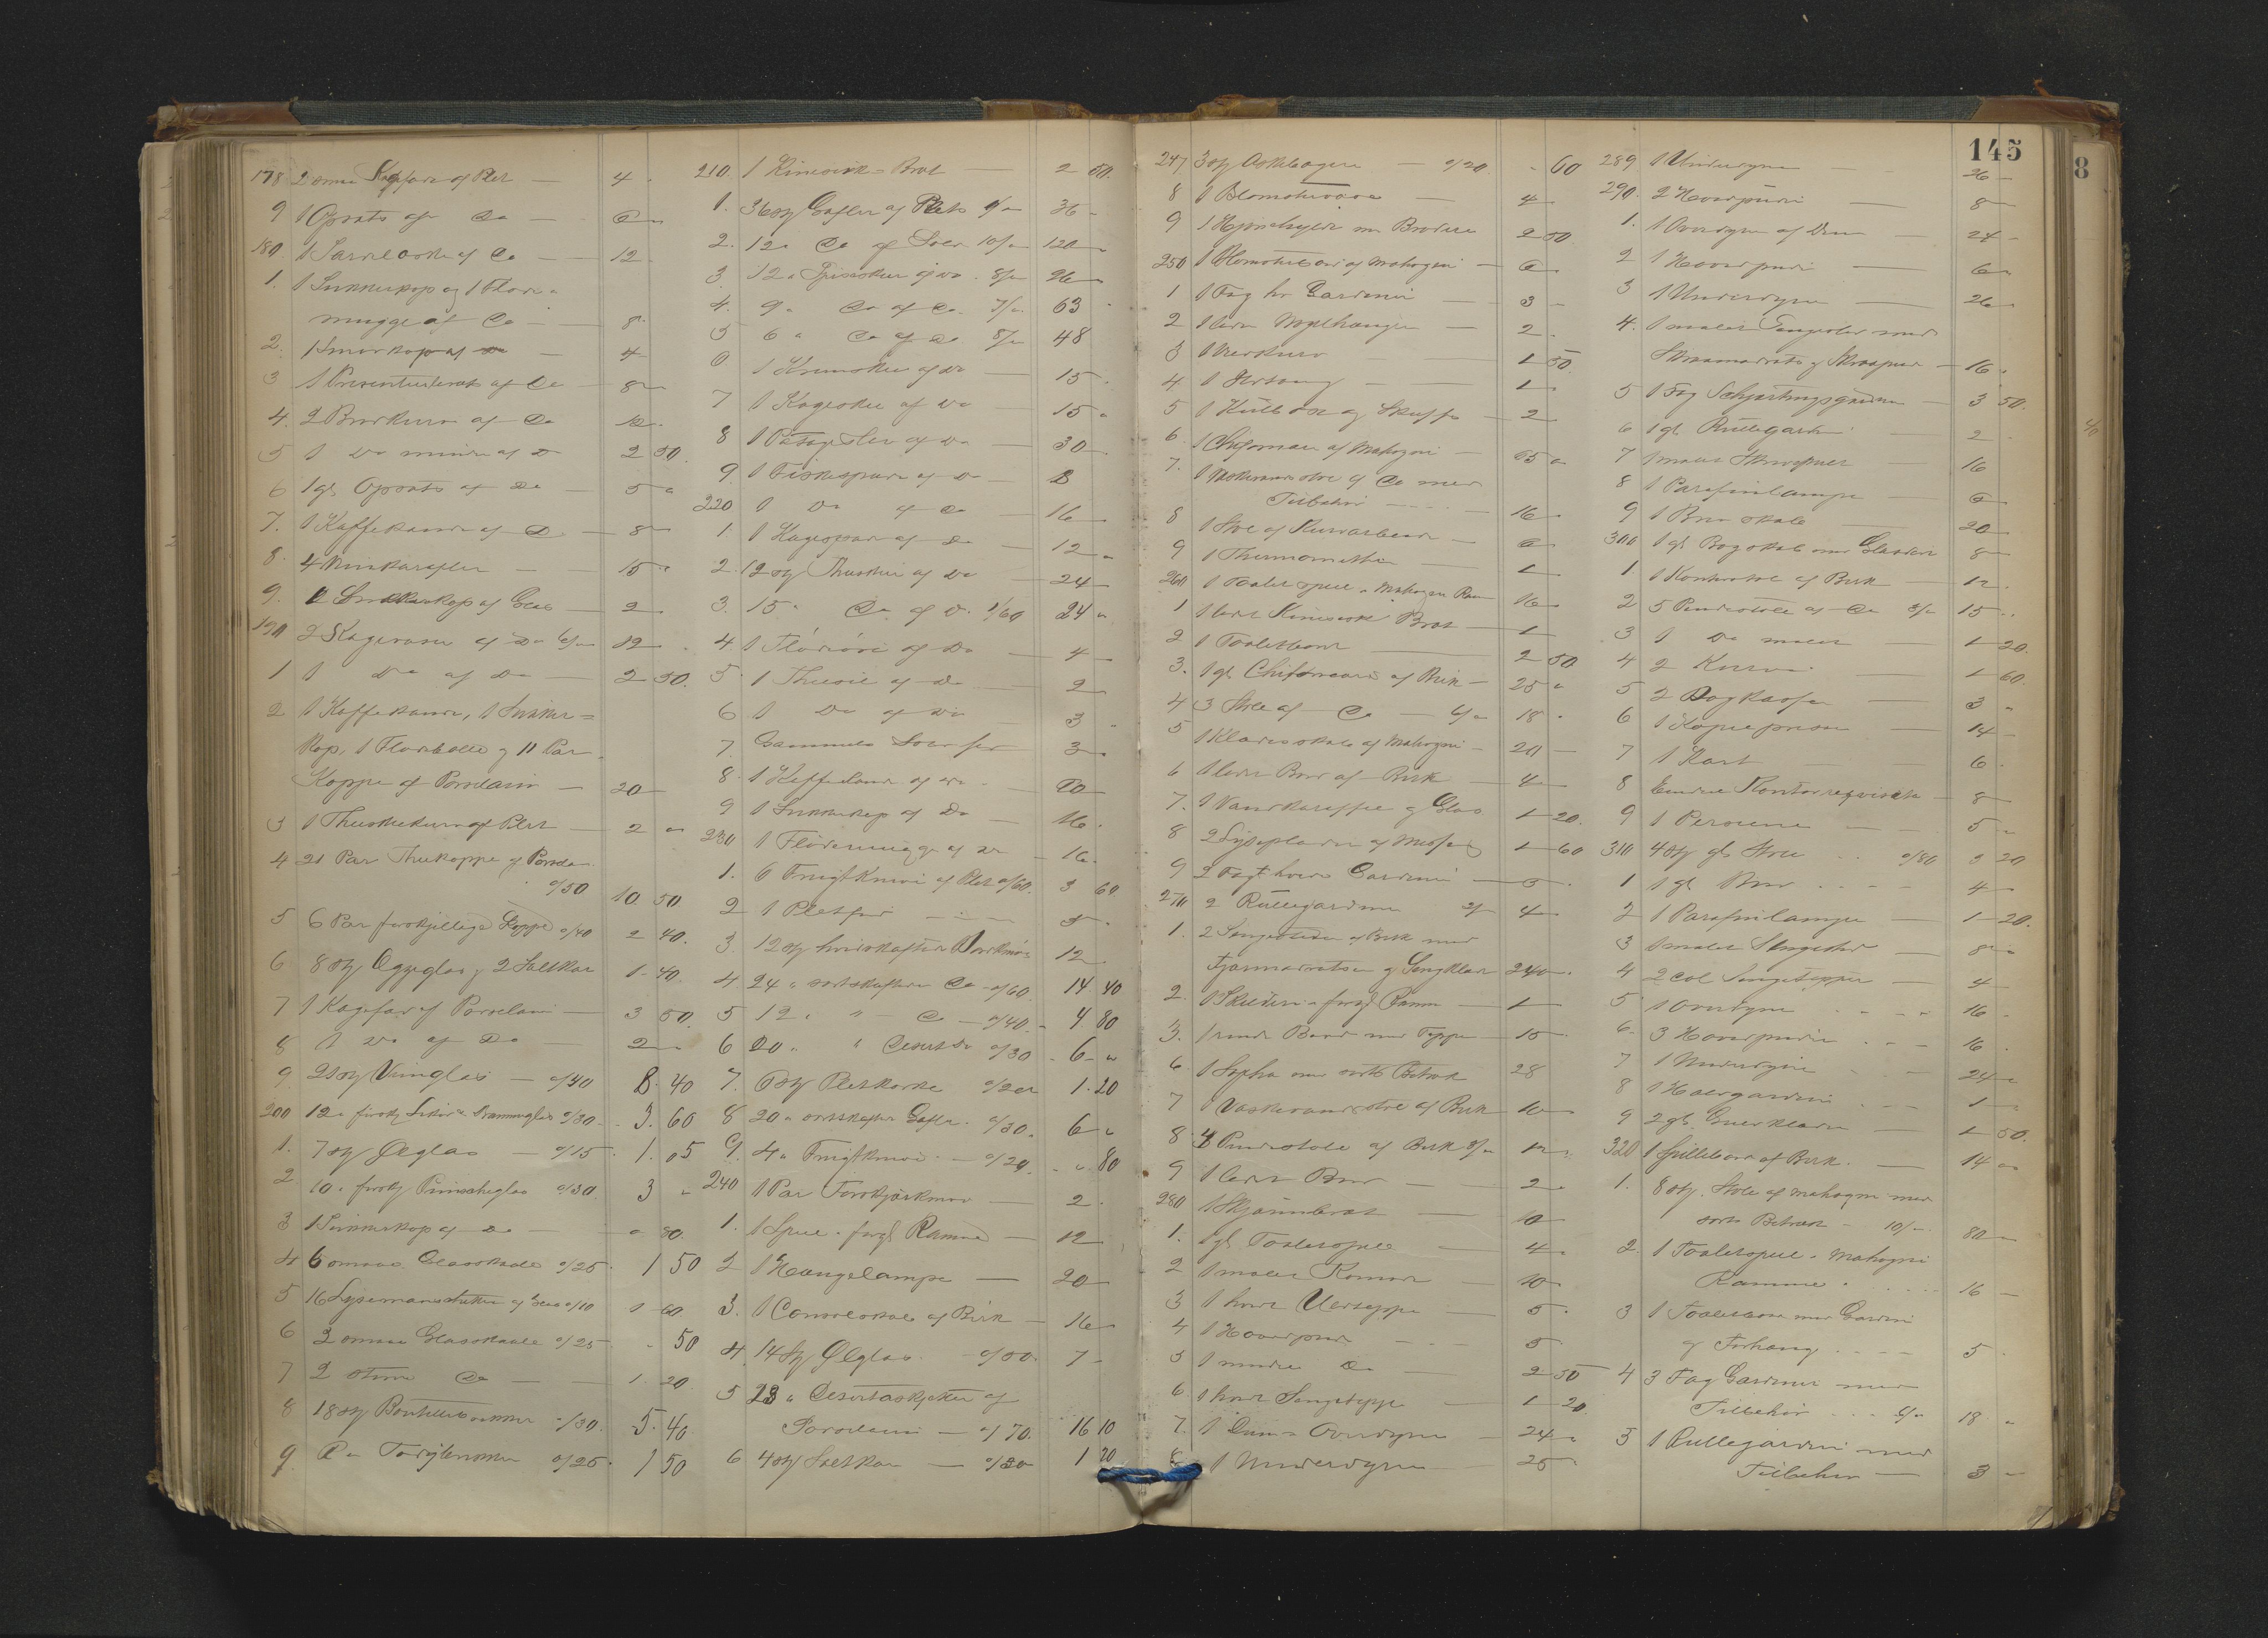 145
178 2 smaa Kagefade af Plet — 4 -
9 1 Opsats af Do — 6 -
180. 1 Sardeleske af Do — 12
1. 1 Sukkerkop og 1 Fløde-
mugge af Do — 8 -
2. 1 Smørkop af Do — 4
3 1 Presenterbret af Do — 8 -
4. 2 Brødkurve af Do 12 -
5 1 Do mindre af Do 2 50.
6 1 gl. Opsats af Do — 5 "
7. 1 Kaffekande af Do — 8 -
8. 4 Vinkarafler — 15 "
9. 2 Sukkerkop af Glas — 2 -
190 2 Kagevase af Do 6/- 12 -
1 1 Do af Do — 2 50.
2 1 Kaffekande, 1 Sukker=
Kop, 1 Flødebolle og 11 Par
Kopper af Porcelain — 20 -
3 1 Theskekurv af Plet — 2 "
4 21 Par Thekopper af Porcelain
o/50 10. 50
5 6 Par forskjellige Kopper o/40 2 40.
6 8 stk Eggeglas og 2 Saltkar 1. 40.
7 1 Kagefad af Porcelain — 3 50.
8 1 Do af Do — 2 -
9. 21 stk Vinglas — o/40 8. 40
200 12 " forskj. Likør & Dramme glas o/30 - 3. 60
1. 7 stk Ølglas — o/15 - 1. 05
2 10 " forskj Punscheglas o/30. 3 "
3 1 Sukkerkop af Do — " 80.
4 6 smaa Glasskaale o/25 - 1 50
5 16 Lysemanschetter af Glas o/10 1 60
6 2 smaa Glasskaale o/25 - " 50
7 2 større Do — 1. 20
8 18 stk Bouteillebrikker o/30. 5. 40.
9. 6 " Tørglebrikker o/25. 1 50
210. 1 Kinesisk = Bret — 2 50.
1. 36 stk Gafler af Plet 1/- 36 -
2. 12 " Do af Sølv 10/- 120 -
3. 12 " Spiseskeer af Do. 8/- 96 -
4. 9 " Do af Do. 7/- 63 -
5 6 " Do af Do 8/- 48
6 1 Krumske af Do — 15 -
7 1 Kageske af Do — 15 "
8 1 Potageske af Do — 30 -
9 1 Fiskespade af Do — 8
220 1 Do af Do — 16 -
1. 1 Kagespade af Do — 12 "
2. 12 stk Theskeer af Do — 24 -
3. 15 " Do af Do 1/60 24 "
4. 1 Flødeøse af Do — 4 -
5. 1 Thesie af Do — 2 -
6 1 Do af Do — 3 "
7. Gammelt Sølvfor 3 -
8. 1 Kaffekande af Do - 80 -
9 1 Sukkerkop af Do — 16.
230 1 Flødemugge af Do - 16.
1. 6 Frugtknive af Plet o/60. 3 60.
2 1 Pletfad — 5 -
3. 12 stk hvidskaftede Bordknive 12 -
4 24 " sortskaftede Do o/60. 14 40
5 12 " " — Do — o/40. - 4 80
6 20 " " Desert Do o/30 - 6 - "
7. 6 stk Pletkorke o/20 1. 20
8 20 " sortskaftede Gafler. o/30. 6 "
9. 4 " Frugtknive — o/20. - " 80
240 1 Par Forskjærknive — 2 -
1. 1 Speil i forgl Ramme — 12
2 1 Hængelampe — 20 -
3. 1 Consolskab af Birk — 16 -
4. 14 stk Ølglas — o/50. 7 -
5 23 " Deserttaskjener af
Porcelain — o/70. 16 10
6 4 stk Saltkar — o/30 1 20
247 3 stk Askebægere — o/20. - 60
8 1 Blomstervase — 4 -
9 1 Hjørnehylde m Broderi 2 50
250 1 Blomsterbord af Mahogni — 6 -
1 1 Fag hv Gardiner — 3 -
2 1 liden Nøglehænger — 2 -
3 1 Vedkurv — 1 50.
4 1 Ildtang — 1 -
5 1 Kulboxe og Skuffe — 2
6. 1 Chifonniere af Mahogni — 65 "
7. 1 Vaskevandsstol af Do med
Tilbehør — 16 -
8 1 Stol af Kurvarbeide — 6
9 1 Thermometer — 1
260 1 Toiletspeil i Mahogni Ramme 16 -
1 1 liden Kinesisk Bret — 1
2 1 Toiletbord — 2 50
3. 1 gl. Chifonniere af Birk — 25 "
4 3 Stole af Do — 6/- 18 -
5 1 Klædesskab af Mahogni — 20 -
6 1 liden Bord af Birk — 4 -
7. 1 Vandkaraffel af Glas 1 20.
8 2 Lyseplader af Messing 1 60
9 2 Fag hvide Gardiner — 5 -
270 2 Rullegardiner 2/- 4 -
1. 2 Sengesteder af Birk med
Fjærmadrasser og Sengklæder 240 -
2. 1 Skilderi i forgl Ramme — 1 -
3. 1 rundt Bord med Teppe — 15 -
6 1 Sopha med sorte Betræk 28
7 1 Vaskevandsstol af Birk 10 -
8. 4 Pindestole af Birk 3/- 12 -
9 1 liden Bord — 2 -
280 1 Skjænkbret — 10 -
1. 1 gl. Toiletspeil — 4 -
2 1 malet Komode — 10 -
3 1 hvidt Uldteppe — 5 -
4 1 Hovedpude — 5 -
5 1 mindre Do — 2 50
6. 1 hvidt Sengeteppe — 1 20.
7. 1 Duns Overdyne — 24 "
8. 1 Underdyne — 25 "
289 1 Underdyne — 26 -
290. 2 Hovedpuder — 8 -
1. 1 Overdyne af Dun — 24 -
2 1 Hovedpude — 6 -
3 1 Underdyne — 26 -
4. 1 malet Sengested med
Straamadrats og Skraapude — 16 -
5 1 Fag Schjærtingsgardiner — 3 50.
6 1 gl. Rullegardin — 2 -
7 1 malet Skrivepult — 16
8 1 Parafinlampe — 6 -
9 1 Brevskab — 20 -
300 1 gl Bogskab med Glasdøre 8 -
1. 1 Kontorstol af Birk — 12.
2 5 Pindestole af Do 3/- 15 -
3 1 Do malet — 1 20.
4 2 Kurve — 1 60.
5 2 Bogkasser — 3 "
6 1 Kopiepresse — 14 -
7 1 Kart — 6.
8 Endel Kontorrequisita — 8 -
9 1 Persienne — 5 "
310 4 stk gl. Stole o/80 3 20
1 1 gl Bord — 4 -
2 1 Parafinlampe — 1 20.
3 1 malet Sengested — 8 -
4 2 col Sengetepper — 4 -
5 1 Overdyne — 16 -
6. 3 Hovedpuder — 16 -
7 1 Underdyne — 24 "
8 1 Huergardin — 1 -
9 2 gl. Gulvklæder — 1 50.
320 1 Spillebord af Birk. — 14 -
1. 8 stk. Stole af Mahogni med
sorte Betræk - 10/- 80 -
2. 1 Toiletspeil i Mahogni
Ramme 16 -
3 1 Toiletbord med Gardin
og Forhæng — 5 -
4 3 Fag Gardiner med
Tilbehør 6/- 18 "
5 1 Rullegardin med
Tilbehør — 3 -
8